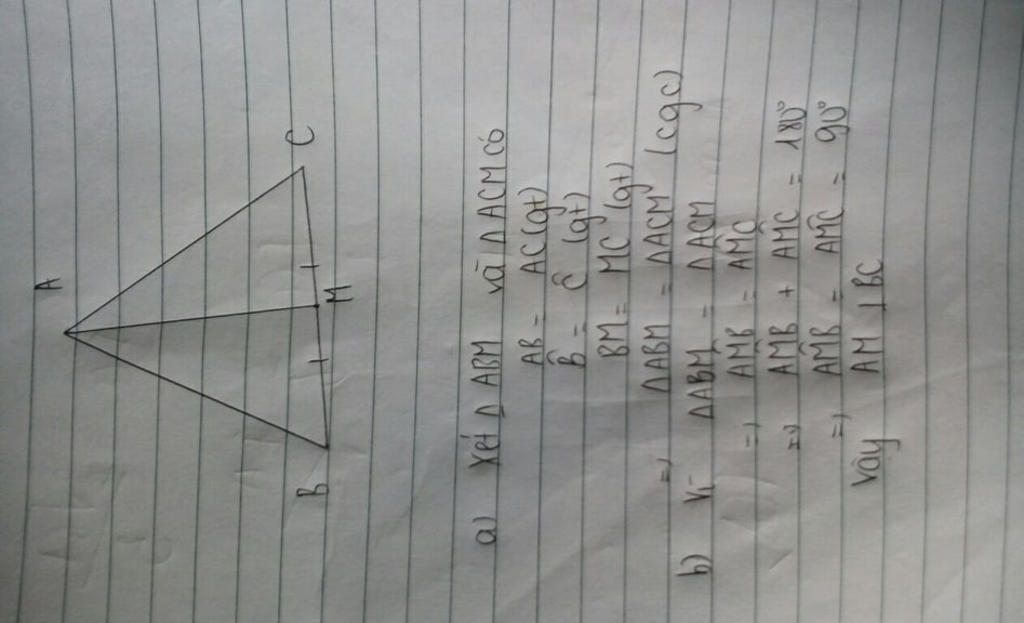 A
B
M
C
a) Xét Δ ABM và Δ ACM có
AB = AC (gt)
B̂ = Ĉ (gt)
BM = MC (gt)
=> ΔABM = ΔACM (cgc)
b) Vì ΔABM = ΔACM
=> AM̂B = AM̂C
=> AM̂B + AM̂C = 180°
=> AM̂B = AM̂C = 90°
Vậy AM ⊥ BC